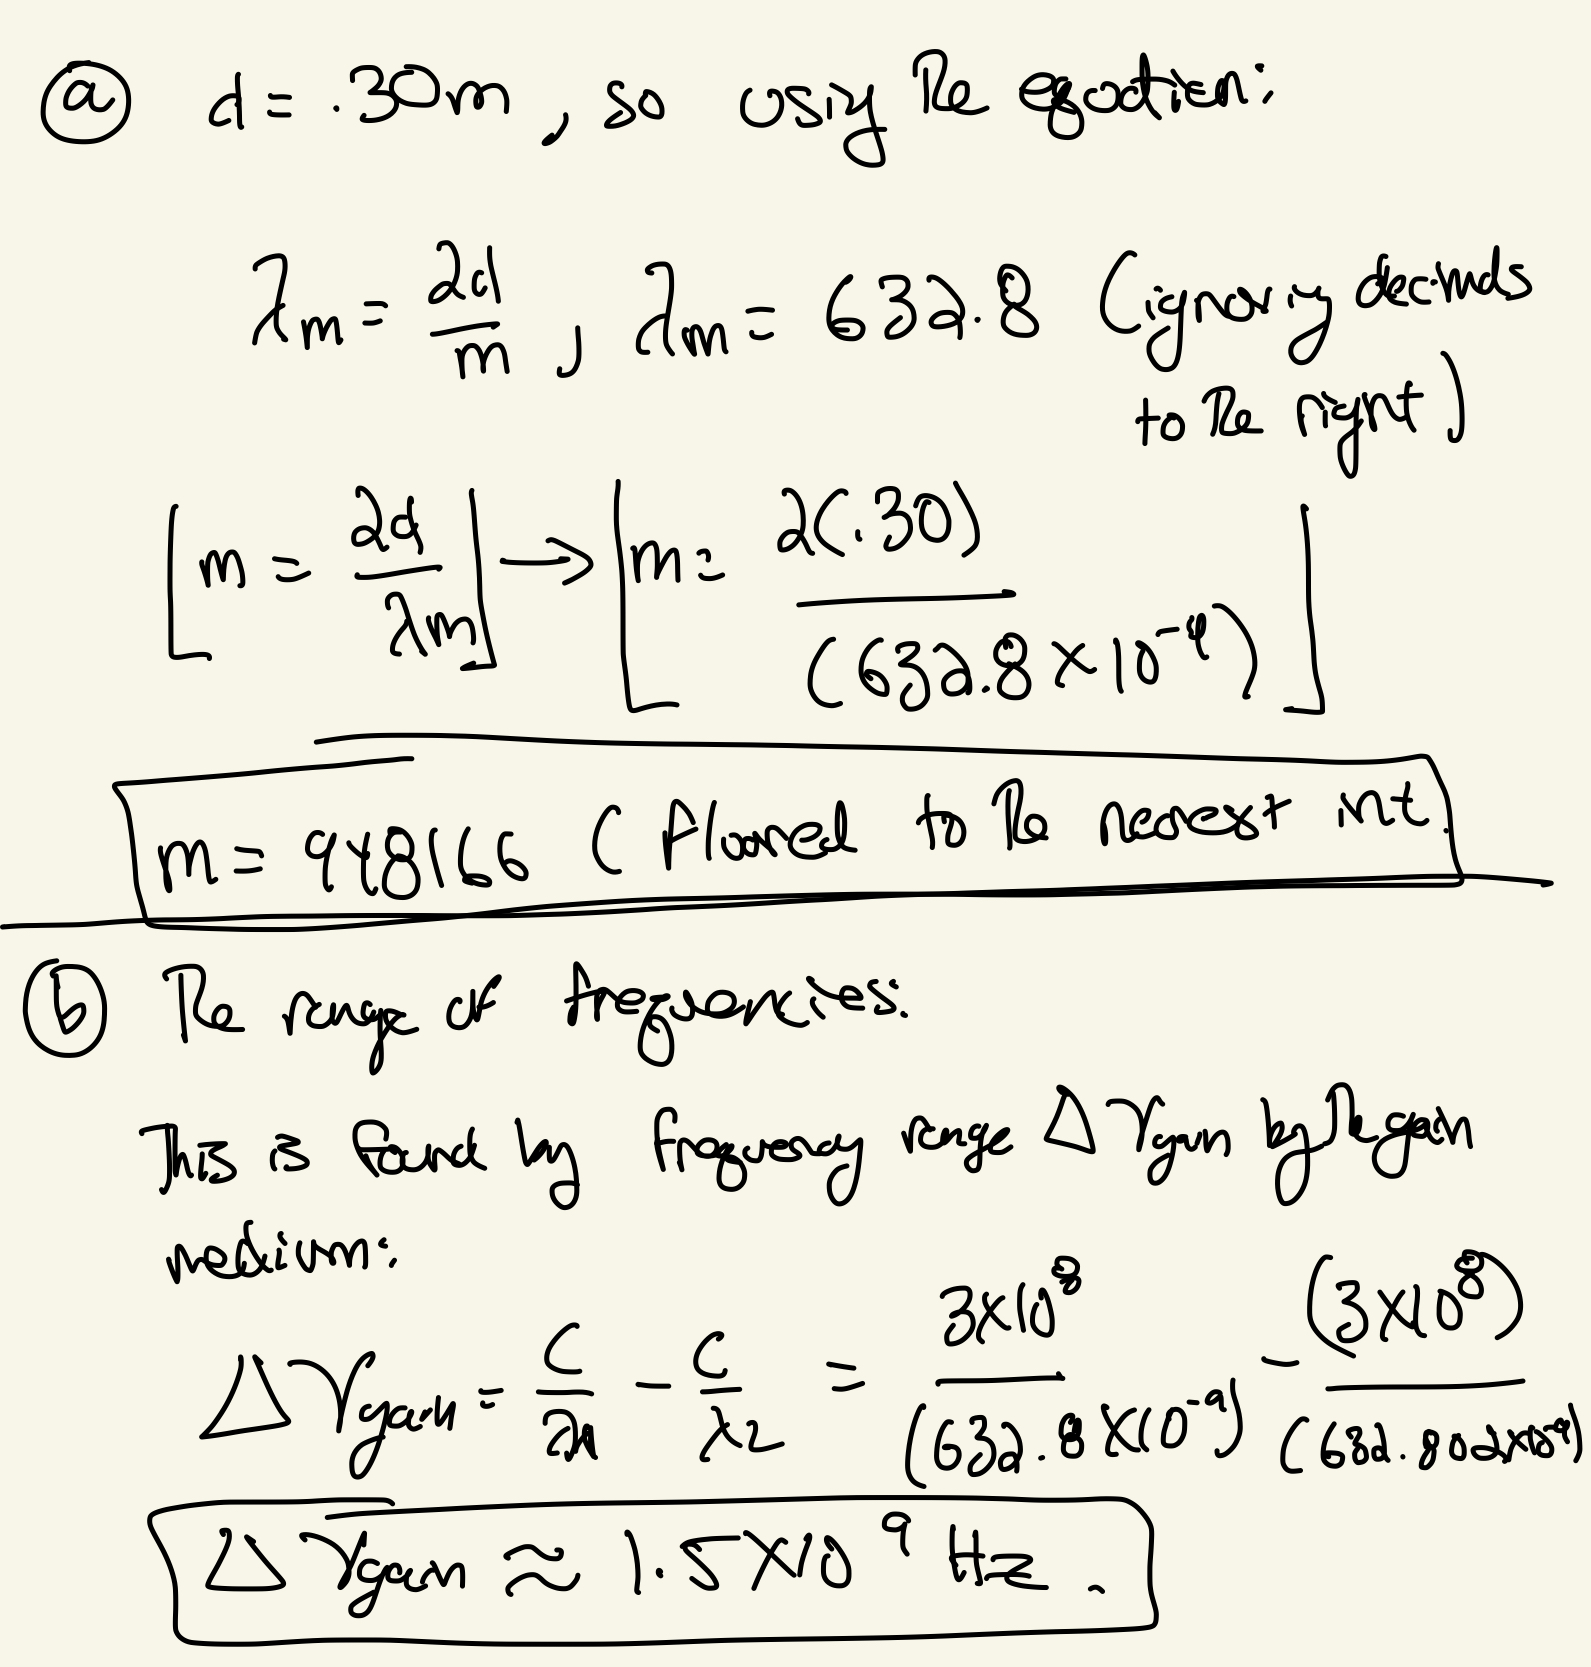 ⓐ d = .30m, so using the equation:
λm = 2d/m, λm = 632.8 (ignoring decimals
to the right)
[m = 2d/λm] → [m = 2(.30)/(632.8×10⁻⁹)]
m = 948166 (floored to the nearest int.
ⓑ The range of frequencies.
This is found by frequency range Δγgain by the gain
medium:
Δγgain = C/λ1 - C/λ2 = 3×10⁸/(632.8×10⁻⁹) - (3×10⁸)/(632.802×10⁻⁹)
Δγgain ≈ 1.5×10⁹ Hz.